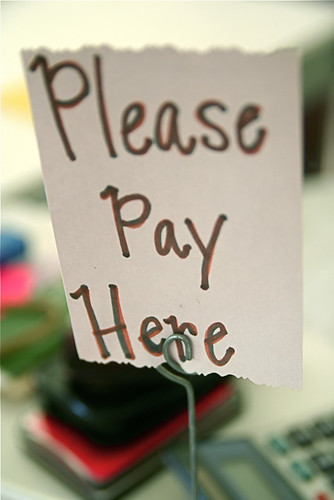 Please
Pay
Here